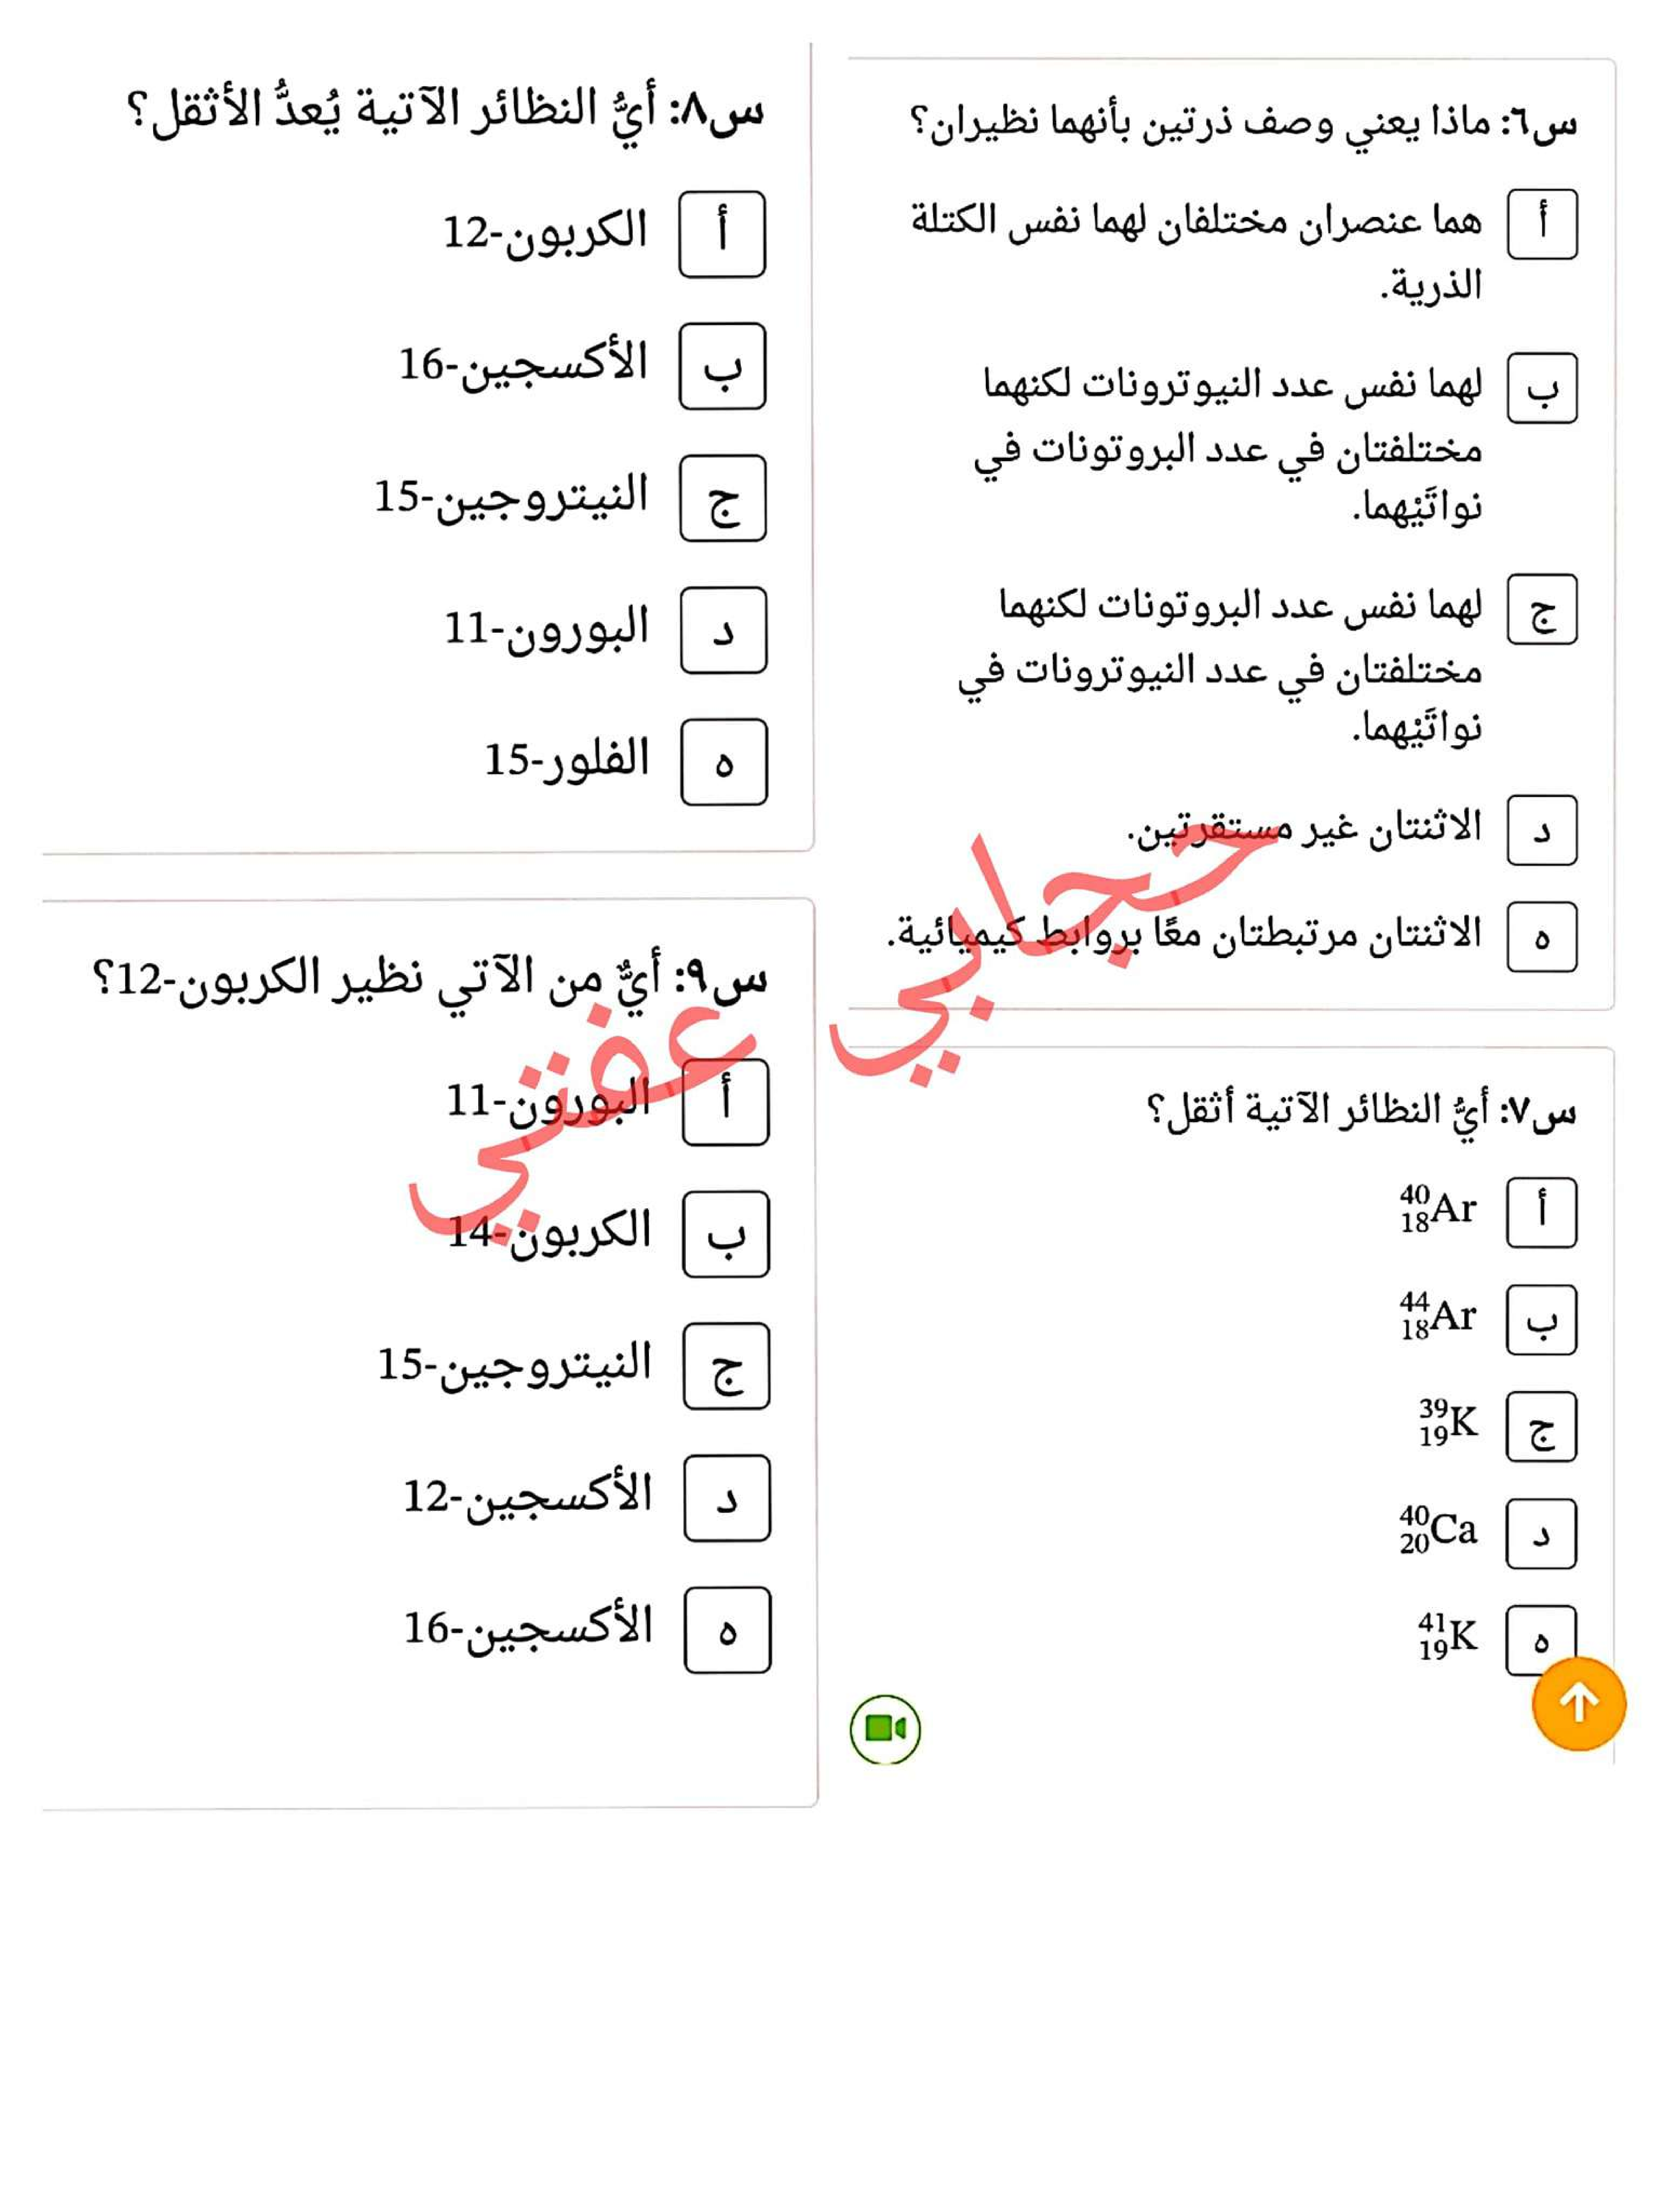 س٦: ماذا يعني وصف ذرتين بأنهما نظيران؟
أ هما عنصران مختلفان لهما نفس الكتلة
الذرية.
ب لهما نفس عدد النيوترونات لكنهما
مختلفتان في عدد البروتونات في
نواتَيْهما.
ج لهما نفس عدد البروتونات لكنهما
مختلفتان في عدد النيوترونات في
نواتَيْهما.
د الاثنتان غير مستقرتين.
ه الاثنتان مرتبطتان معًا بروابط كيميائية.
س٧: أيُّ النظائر الآتية أثقل؟
أ ⁴⁰₁₈Ar
ب ⁴⁴₁₈Ar
ج ³⁹₁₉K
د ⁴⁰₂₀Ca
ه ⁴¹₁₉K
س٨: أيُّ النظائر الآتية يُعدُّ الأثقل؟
أ الكربون-12
ب الأكسجين-16
ج النيتروجين-15
د البورون-11
ه الفلور-15
س٩: أيٌّ من الآتي نظير الكربون-12؟
أ البورون-11
ب الكربون-14
ج النيتروجين-15
د الأكسجين-12
ه الأكسجين-16
حجابي عفتي